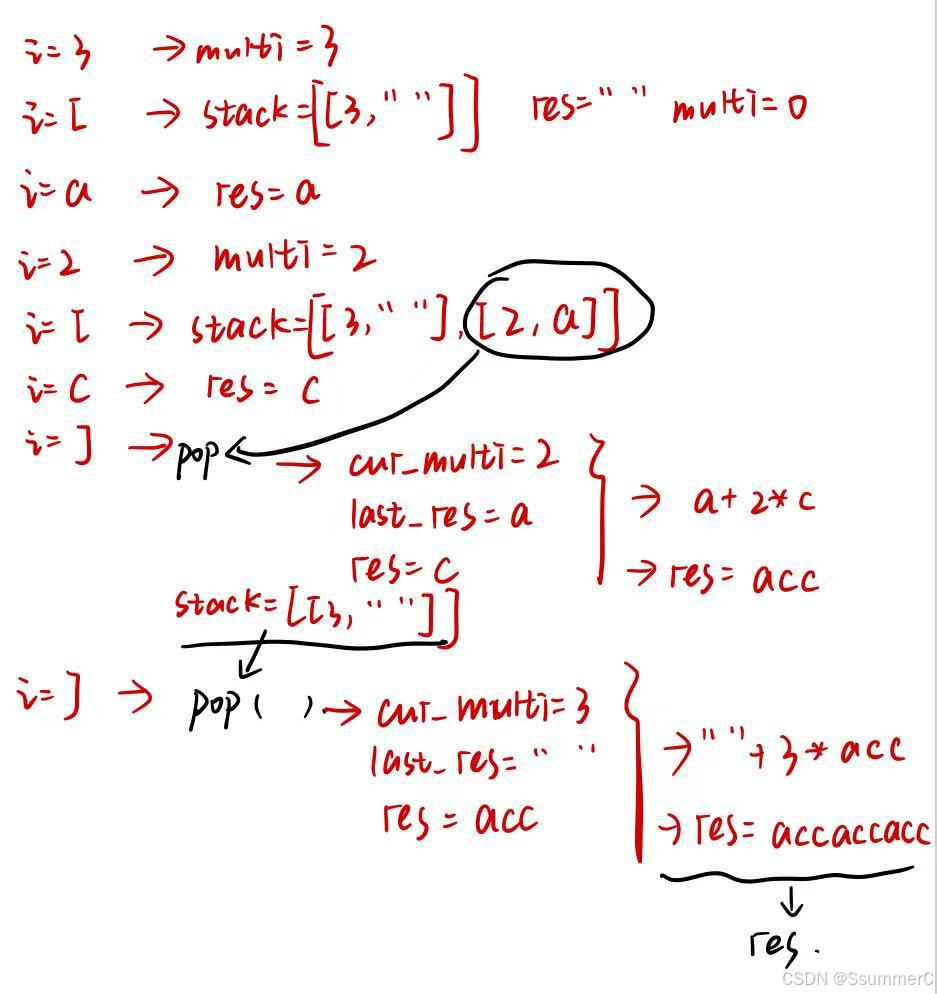 i=3 → multi=3
i=[ → stack=[[3,“ ”]] res=“ ” multi=0
i=a → res=a
i=2 → multi=2
i=[ → stack=[[3,“ ”],[2,a]]
i=c → res=c
i=] → pop → cur_multi=2
last_res=a
res=c
→ a+2*c
→ res=acc
stack=[[3,“ ”]]
i=] → pop( ). → cur_multi=3
last_res=“ ”
res=acc
→ “ ”+3*acc
→ res=accaccacc
↓
res.
CSDN @SsummerC